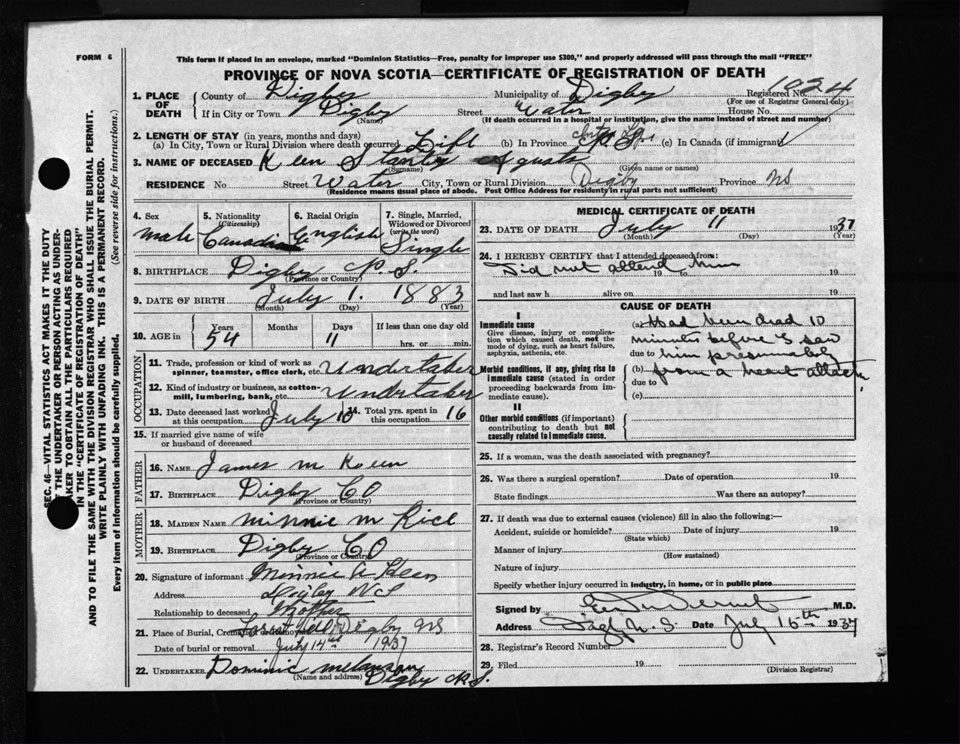 FORM 6
This form if placed in an envelope, marked "Dominion Statistics—Free, penalty for improper use $300," and properly addressed will pass through the mail "FREE"
PROVINCE OF NOVA SCOTIA—CERTIFICATE OF REGISTRATION OF DEATH
1. PLACE OF DEATH
County of Digby Municipality of Digby Registered No. 1924
(For use of Registrar General only)
If in City or Town Digby Street Water House No.
(Name) (If death occurred in a hospital or institution, give the name instead of street and number)
2. LENGTH OF STAY (in years, months and days)
(a) In City, Town or Rural Division where death occurred Life (b) In Province (c) In Canada (if immigrant)
3. NAME OF DECEASED Keen Stanley
(Surname) (Given name or names)
RESIDENCE No Street Water City, Town or Rural Division Digby Province NS
(Residence means usual place of abode. Post Office Address for residents in rural parts not sufficient)
4. Sex 5. Nationality (Citizenship) 6. Racial Origin 7. Single, Married, Widowed or Divorced (write the word)
male Canadian English Single
8. BIRTHPLACE Digby N.S.
(Province or Country)
9. DATE OF BIRTH July 1. 1883
(Month) (Day) (Year)
10. AGE in Years Months Days If less than one day old
54 11 hrs. or min.
OCCUPATION
11. Trade, profession or kind of work as spinner, teamster, office clerk, etc. Undertaker
12. Kind of industry or business, as cotton-mill, lumbering, bank, etc. Undertaker
13. Date deceased last worked at this occupation July 14. Total yrs. spent in this occupation 16
15. If married give name of wife or husband of deceased
FATHER
16. NAME James M Keen
17. BIRTHPLACE Digby CO
(Province or Country)
MOTHER
18. MAIDEN NAME Minnie M Rice
19. BIRTHPLACE Digby CO
(Province or Country)
20. Signature of informant Minnie A Keen
Address Digby NS
Relationship to deceased Mother
21. Place of Burial, Cremation or Removal Forest Hill, Digby NS
Date of burial or removal July 14th 1937
22. UNDERTAKER Dominic Melanson
(Name and address) Digby N.S.
MEDICAL CERTIFICATE OF DEATH
23. DATE OF DEATH July 11 1937
(Month) (Day) (Year)
24. I HEREBY CERTIFY that I attended deceased from:
Did not attend him 19 to 19
and last saw h alive on 19
CAUSE OF DEATH
I
Immediate cause
Give disease, injury or complication which caused death, not the mode of dying, such as heart failure, asphyxia, asthenia, etc.
(a) Had been dead 10
minutes before I saw
due to him presumably
Morbid conditions, if any, giving rise to immediate cause (stated in order proceeding backwards from immediate cause).
(b) from a heart attack
due to
(c)
II
Other morbid conditions (if important) contributing to death but not causally related to immediate cause.
25. If a woman, was the death associated with pregnancy?
26. Was there a surgical operation? Date of operation 19
State findings Was there an autopsy?
27. If death was due to external causes (violence) fill in also the following:—
Accident, suicide or homicide? Date of injury 19
(State which)
Manner of injury
(How sustained)
Nature of injury
Specify whether injury occurred in industry, in home, or in public place
Signed by M.D.
Address N.S. Date July 16th 1937
28. Registrar's Record Number
29. Filed 19
(Division Registrar)
SEC. 46—VITAL STATISTICS ACT MAKES IT THE DUTY OF THE UNDERTAKER OR PERSON ACTING AS UNDERTAKER TO OBTAIN ALL THE PARTICULARS REQUIRED IN THE "CERTIFICATE OF REGISTRATION OF DEATH"
AND TO FILE THE SAME WITH THE DIVISION REGISTRAR WHO SHALL ISSUE THE BURIAL PERMIT.
WRITE PLAINLY WITH UNFADING INK. THIS IS A PERMANENT RECORD.
Every item of information should be carefully supplied. (See reverse side for instructions.)